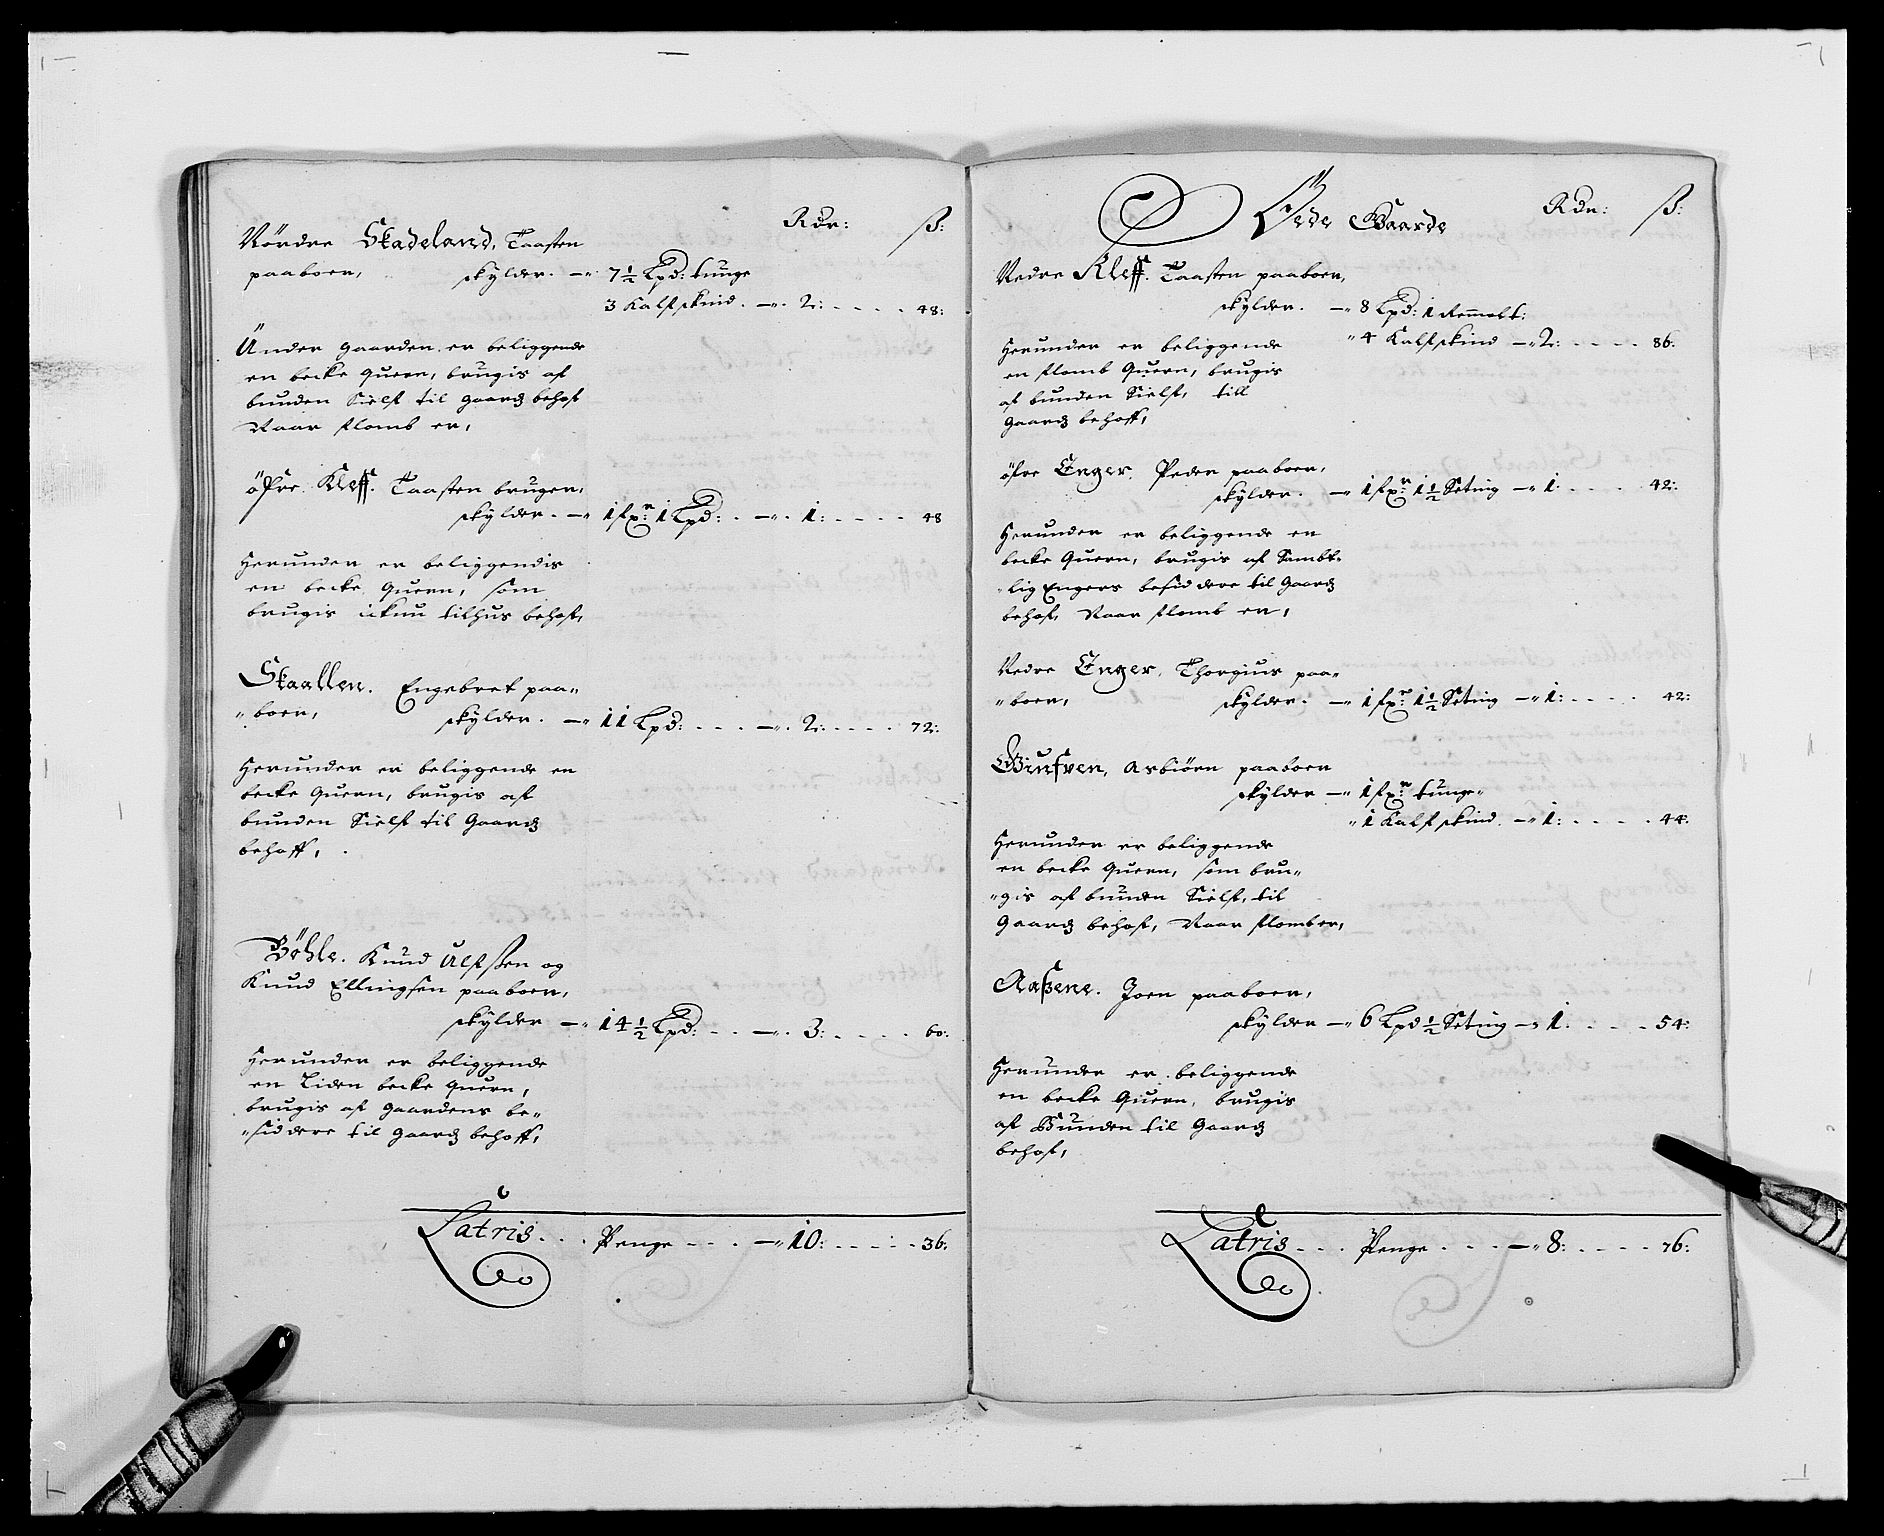 Rdr: ß:
Nördre Skadeland, Taasten
paaboer, skylder. — 7½ Lpd: tunge
3 Kalfskind. — 2: - - - - 48:
Under gaarden er beliggende
en becke quern, brugis af
bunden Sielf til gaards behof
Naar flomb er,
öfre. Kleff. Taasten bruger,
skylder. — 1 1 Lpd: - - 1: - - - - 48
Herunder er beliggendis
en becke Quern, som
brugis ickun tilhus behof,
Skaallen. Engebret paa-
boer, skylder. — 11 Lpd: - - - 2: - - - - 72:
Herunder er beliggende en
becke Quern, brugis af
bunden Sielf til Gaards
behoff,
Böhle. Knud og
Knud Ellingsen paaboer,
skylder — 14½ Lpd: - - 3: - - - - 60:
Herunder er beliggende
en Liden becke quern,
brugis af Gaardens be-
siddere til Gaards behoff,
Latris - - - Penge - - - 10: - - - - 36:
Öede Gaarde Rdr: ß:
Nedre Kleff. Taasten paaboer,
skylder. — 8 Lpd: 1
4 Kalfskind — 2: - - - - 86:
Herunder er beliggende
en flomb Quern, brugis
af bunden Sielf, till
Gaards behoff,
öfre Enger. Peder paaboer,
skylder. — 1 1½ Seting — 1: - - - - 42:
Herunder er beliggende en
becke Quern, brugis af Sambt-
lig Engers besiddere til Gaards
behof, Naar flomb er,
Nedre Enger, Thorgius paa-
boer, skylder. — 1 1½ Seting — 1: - - - - 42:
Asbiörn paaboer
skylder — 1 tunge
1 Kalfskind. — 1: - - - - 44:
Herunder er beliggende
en becke Quern, som bru-
gis af bunden Sielf, til
Gaards behof, Naar flomber,
Aaßene. Joen paaboer,
skylder — 6 Lpd ½ Seting — 1: - - - - 54:
Herunder er beliggende
en becke Quern, brugis
af Bunden til Gaards
behof,
Latris - - - Penge - - - 8: - - - - 76: